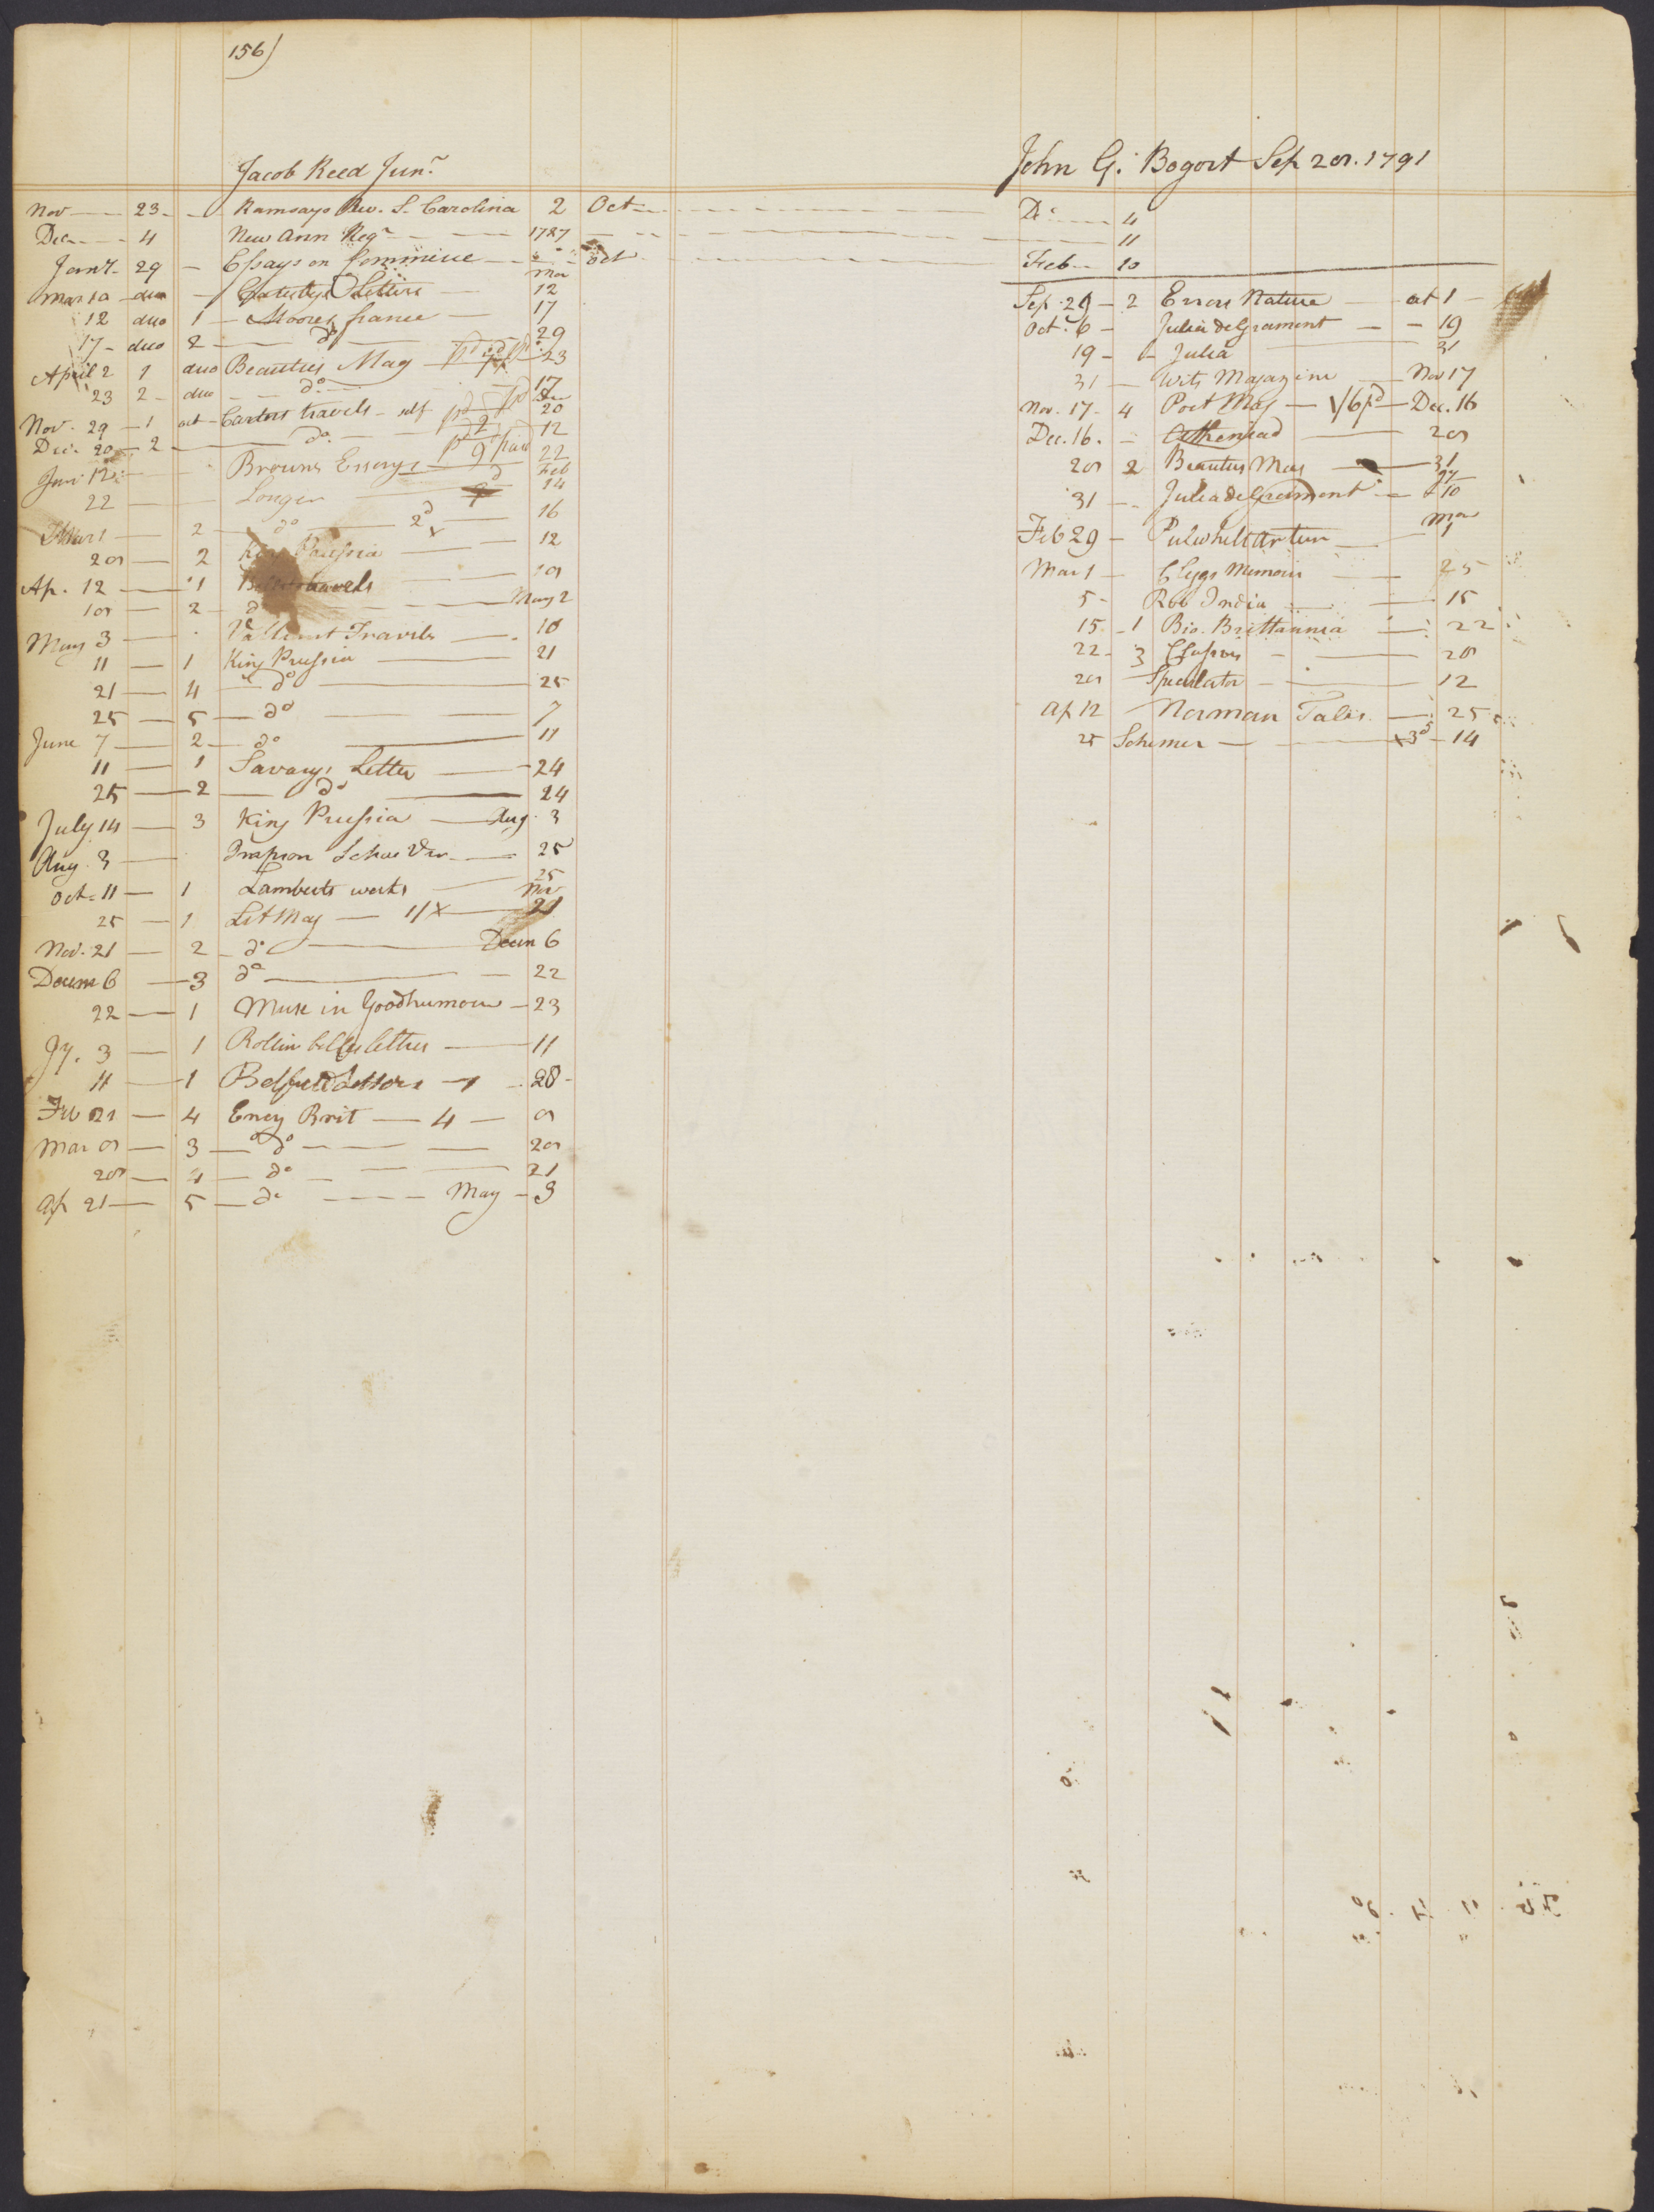 156)
Jacob Reed Junr
Nov 23 Ramsays Rev. S. Carolina 2 Oct Dc 4
Dec 4 New Ann Regr 1787 11
Jany 29 Essays on oct Feb 10
Mar 10 duo Letters Mar 12
12 duo 1 Moores france 17
17 duo 2 do 29
April 2 1 duo Beauties Mag 23
23 2 duo do 17
Nov. 29 1 oct Carters travels self 20
Dec. 20 2 do 12
Jan 12 Browns Essays 22
22 Longer Feb 14
Mar 1 2 do 2d 16
20 2 King Prussia 12
Ap. 12 1 travels
2 do May 2
May 3 Vaillant Travels 10
11 1 King Prussia 21
21 4 do 25
25 5 do 7
June 7 2 do 11
11 1 Savarys Letter 24
25 2 do 24
July 14 3 King Prussia Aug. 3
Aug. 3 25
Oct 11 1 Lamberts works 25
25 1 Lit Mag 1/X Nov 21
Nov. 21 2 do Decem 6
Decem 6 3 do 22
22 1 Muse in Goodhumour 23
Jy. 3 1 Rollin belles lettres 11
11 1 Letters 28
Feb 21 4 Ency Brit 4 8
Mar 8 3 do 28
28 4 do 21
Ap 21 5 do May 3
John G. Bogert Sep 28. 1791
Sep. 29 2 Errors Nature oct 1
Octr 6 Julia de Gramont 19
19 Julia 31
31 Wits Magazine Nov 17
Nov. 17 4 Poet Mag 1/6 pd Dec. 16
Dec. 16. Athenead 28
28 2 Beauties Mag 31
31 Julia de Gramont 10
Feb 29 Mar 1
Mar 1 Memoirs 25
5 Rob India 15
15 1 Bio. Brittannia 22
22 3 28
28 Speculator 12
Ap 12 Norman Tales 25
25 Schemer 3d 14